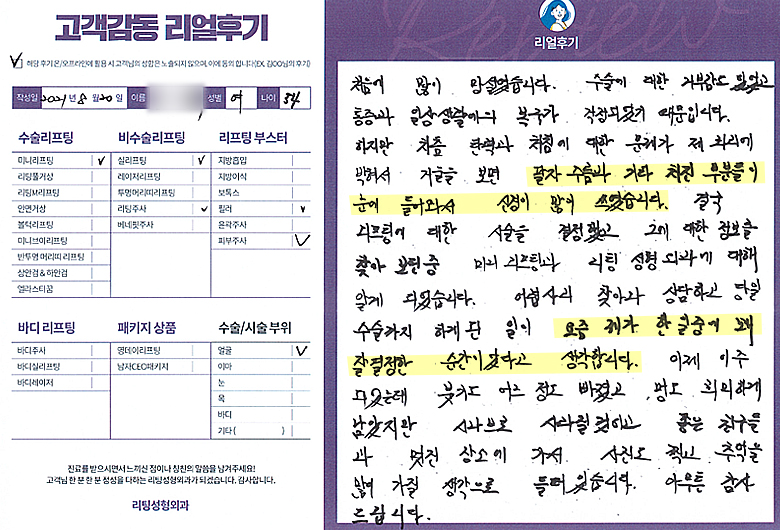 고객감동 리얼후기
해당 후기 온/오프라인에 활용 시 고객님의 성함은 노출되지 않으며, 이에 동의 합니다(EX. 김OO님의 후기)
작성일 2021년 8월 20일 이름 성별 여 나이 54
수술리프팅
미니리프팅 ✓
리팅풀거상
리팅M리프팅
안면거상
볼럭리프팅
미니브이리프팅
반투명 머리띠 리프팅
상안검 & 하안검
엘라스티꿈
비수술리프팅
실리프팅 ✓
레이저리프팅
투명머리띠리프팅
리팅주사 ✓
베네핏주사
리프팅 부스터
지방흡입
지방이식
보톡스
필러 ✓
윤곽주사
피부주사 ✓
바디 리프팅
바디주사
바디실리프팅
바디레이저
패키지 상품
영데이리프팅
남자CEO패키지
수술/시술 부위
얼굴 ✓
이마
눈
목
바디
기타 ( )
진료를 받으시면서 느끼신 점이나 칭찬의 말씀을 남겨주세요!
고객님 한 분 한 분 정성을 다하는 리팅성형외과가 되겠습니다. 감사합니다.
리팅성형외과
리얼후기
처음에 많이 망설였습니다. 수술에 대한 거부감도 있었고
통증과 일상생활에의 복귀가 걱정되었기 때문입니다.
하지만 차츰 탄력과 처짐에 대한 문제가 제 뇌리에
박혀서 거울을 보면 팔자 주름과 기타 처진 부분들이
눈에 들어와서 신경이 많이 쓰였습니다. 결국
리프팅에 대한 시술을 결정했고 그에 대한 정보를
찾아 보던중 미니 리프팅과 리팅 성형외과에 대해
알게 되었습니다. 어렵사리 찾아와 상담하고 당일
수술까지 하게 된 일이 요즘 제가 한 일중에 제일
잘 결정한 순간이었다고 생각합니다. 이제 이주
되었는데 붓기도 어느 정도 빠졌고 멍도 희미하게
남았지만 시나브로 사라질 것이고 좋은 친구들
과 멋진 장소에 가서 사진도 찍고 추억을
많이 가질 생각으로 들떠 있습니다. 아무튼 감사
드립니다.